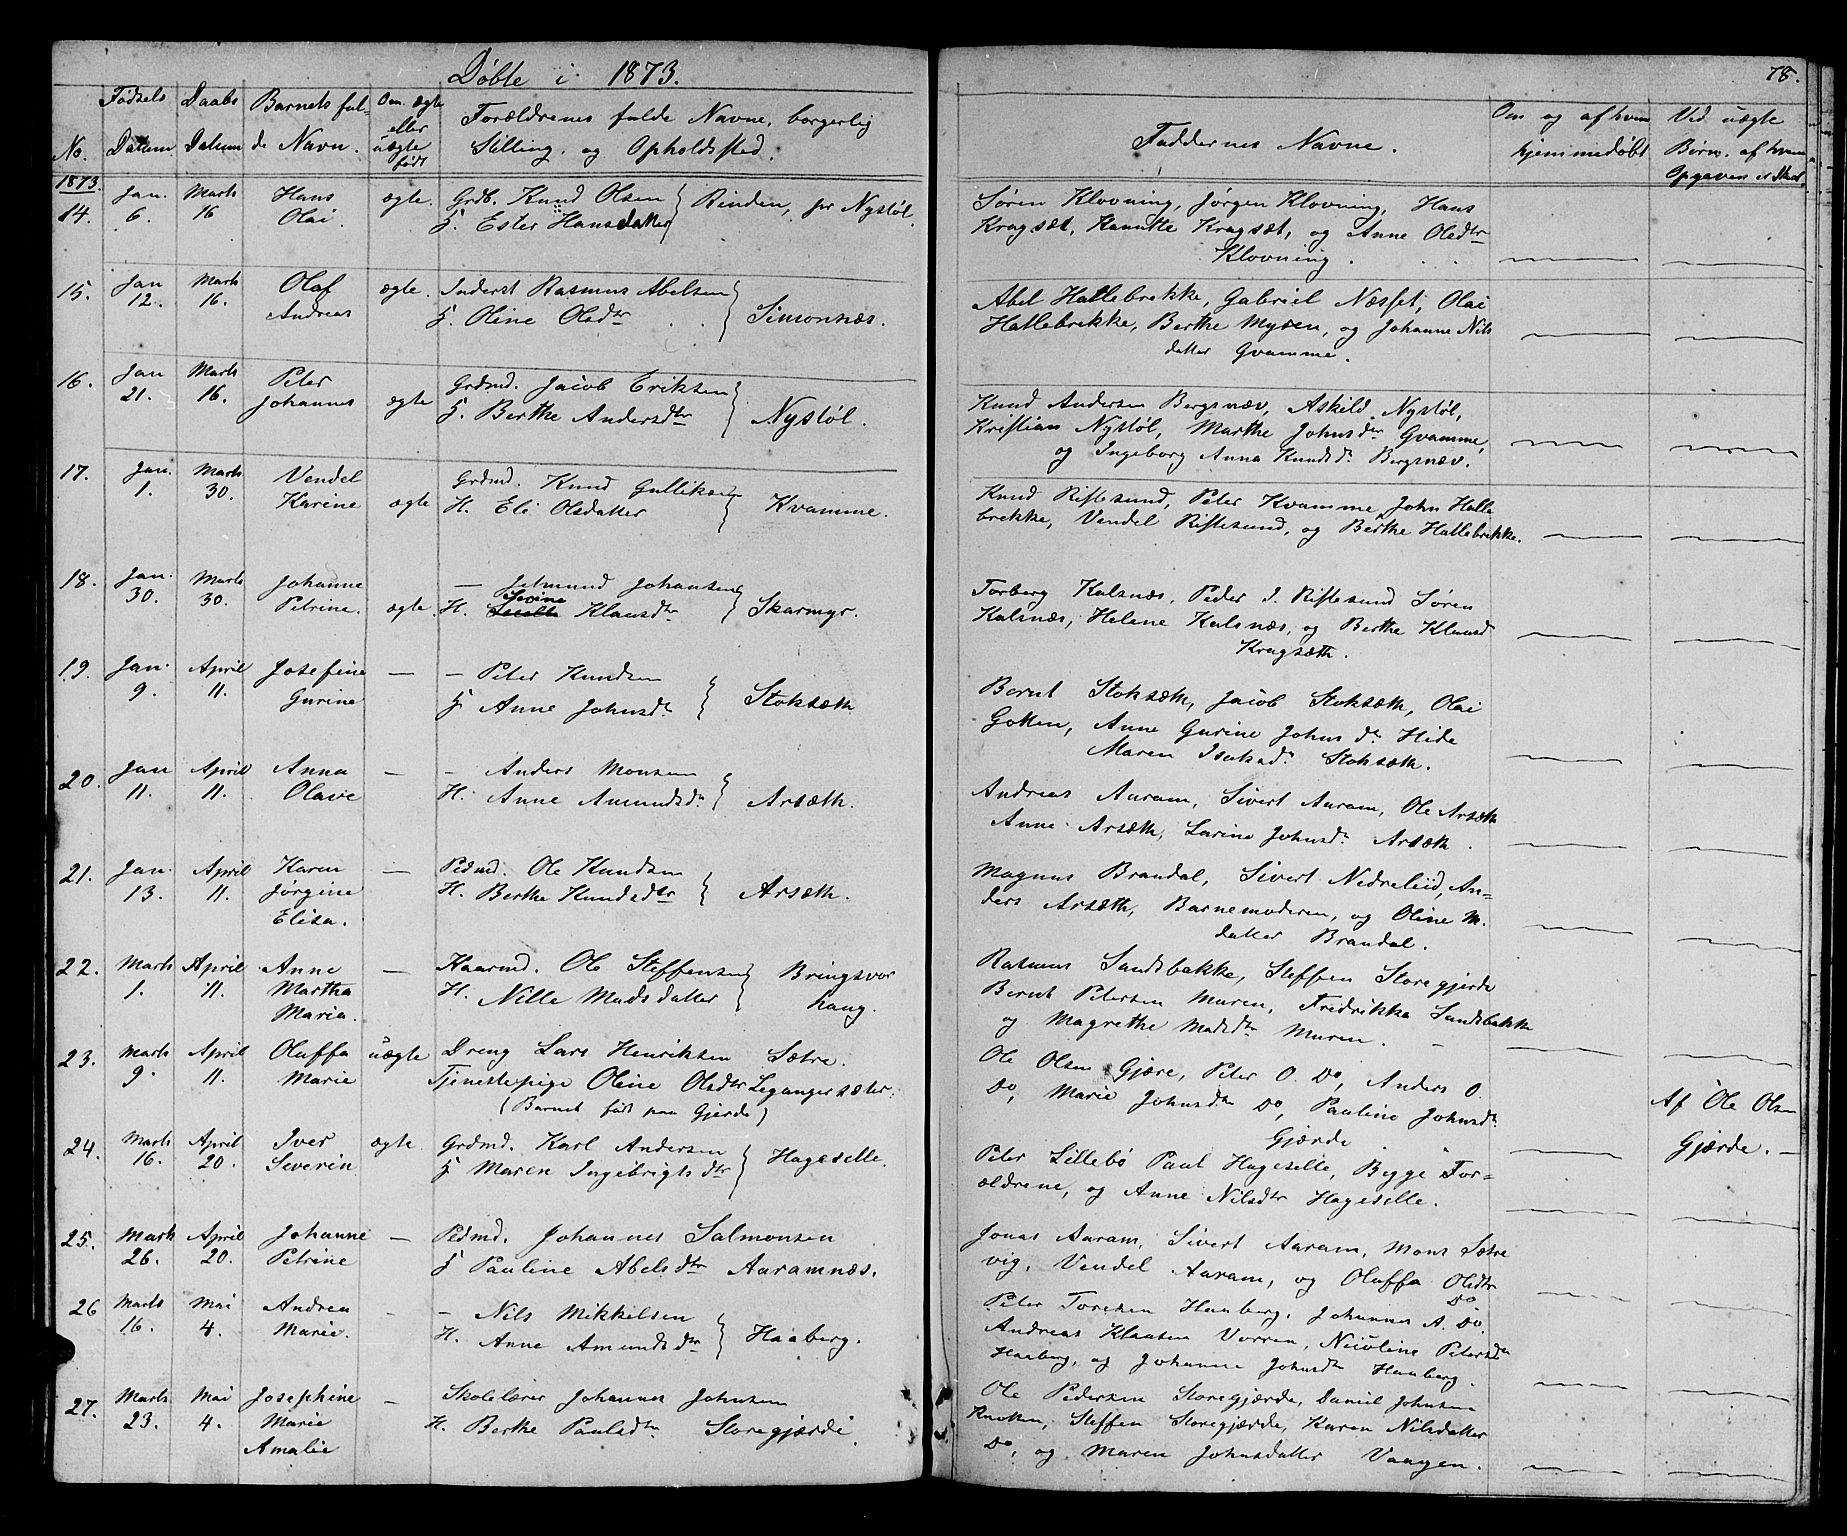 Döbte i 1873.
78.
No.
Fødsels Datum.
Daabs Datum
Barnets fulde Navn.
Om ægte eller uægte født
Forældrenes fulde Navne, borgerlig Stilling, og Opholdssted.
Faddernes Navne.
Om og af hvem hjemmedøbt
Ved uægte Børn. af hvem Opgaven er Sked.
1873.
14. Jan. 6. Marts 16 Hans Olai ægte.
Grdb. Knud Olsen
H. Ester Hansdatter } Rinden, pr Nystøl.
Søren Klovning, Jørgen Klovning, Hans
Kragsæt, Hanutte Kragsæt, og Anne Olsdtr
Klovning.
15. Jan 12. Marts 16. Olaf Andreas ægte.
Inderst Rasmus Abelsen
H. Oline Olsdtr } Simonnæs.
Abel Hattebrekke, Gabriel Næsset, Olai
Hattebrekke, Berthe Myren, og Johanne Nils
datter Gvamme.
16. Jan 21. Marts 16. Peter Johannes ægte
Grdmd. Jacob Eriksen
H. Berthe Andersdtr } Nystøl.
Knud Andersen Bergsnæv, Askild Nystøl,
Kristian Nystøl, Marthe Johnsdr Gvamme,
og Ingeborg Anna Knudsdr Bergsnæv.
17. Jan. 1. Marts 30. Vendel Karine ægte
Grdmd. Knud Gulliksen
H. Eli Olsdatter } Kvamme.
Knud Riftesund, Peter Kvamme, John Halle
brekke, Vendel Riftesund, og Berthe Hattebrekke.
18. Jan. 30. Marts 30. Johanne Petrine. ægte
— Jetmund Johansen
Serine
H. Klausdtr } Skarmyr.
Torberg Kalsnæs, Peder J. Riftesund Søren
Kalsnæs, Helene Kalsnæs, og Berthe Klausd
Kragsæth.
19. Jan. 9. April 11. Josefine Gurine —
— Peter Knudsen
H. Anne Johnsdr } Stoksæth
Bernt Stoksæth, Jacob Stoksæth, Olai
Gotten, Anne Gurine Johnsdr Hide
Maren Isaksdr Stoksæth.
20. Jan 11. April 11. Anna Olave —
— Anders Monsen
H. Anne Amundsdr } Arsæth.
Andreas Aaram, Sivert Aaram, Ole Arsæth
Anne Arsæth, Larine Johnsdr Arsæth.
21. Jan. 13. April 11. Karen Jørgine Elisa. —
Pldmd. Ole Knudsen
H. Berthe Knudsdtr } Arsæth.
Magnus Brandal, Sivert Nedreleid, An-
ders Arsæth, Barnemoderen, og Oline M.
datter Brandal.
22. Marts 1. April 11. Anne Martha Maria. —
Kaarmd. Ole Steffensen
H. Nille Madsdatter } Bringsvor
haug.
Rasmus Sandsbakke, Steffen Storegjerde
Bernt Petersen Muren, Fredrikka Sandsbakke
og Magrethe Madsdtr Muren.
23. Marts 9. April 11. Oluffa Marie uægte
Dreng Lars Henriksen Sætre.
Tjenestepige Oline Olsdtr Legangersæter.
(Barnet født paa Gjerde)
Ole Olsen Gjære, Peter O. Do, Anders O.
Do, Marie Johnsdtr Do, Pauline Johnsdr
Gjærde
Af Ole Olsen
Gjærde. —
24. Marts 16. April 20. Iver Severin ægte.
Grdmd. Karl Andersen
H Maren Ingebrigtsdtr } Hageselle.
Peter Lillebö Paul Hageselle, Begge For-
ældrene, og Anne Nilsdtr Hageselle.
25. Marts 26. April 20. Johanne Petrine —
Pldmd. Johannes Salmonsen
H Pauline Abelsdtr Aaramnæs.
Jonas Aaram, Sivert Aaram, Mons Sætre
vig, Vendel Aaram, og Oluffa Olsdtr
Do
26 Marts 16. Mai 4. Andrea Marie. —
— Nils Mikkelsen
H. Anne Amundsdtr } Haaberg.
Peter Toresen Haaberg, Johannes A. Do.
Andreas Klausen Vorren, Nicoline Petersdr
Haaberg, og Johanne Johnsdtr Haaberg.
27. Marts 23. Mai 4. Josephine Marie Amalie —
Skolelærer Johannes Johnsen
H. Berthe Paulsdtr Storegjærde.
Ole Pedersen Storegjærde, Daniel Johnsen
Knotten, Steffen Storegjærde, Karen Nilsdatter
Do, og Maren Johnsdatter Vaagen.